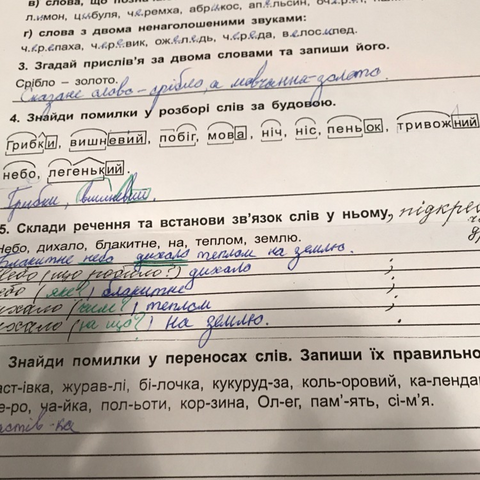 в) слова, що
л.имон, цибуля, черемха, абрикос, апельсин,
г) слова з двома ненаголошеними звуками:
черепаха, черевик, ожеледь, череда, велосипед.
3. Згадай прислів'я за двома словами та запиши його.
Срібло – золото.
Сказане слово – срібло, а мовчання – золото.
4. Знайди помилки у розборі слів за будовою.
Грибки, вишневий, побіг, мова, ніч, ніс, пеньок, тривожний
небо, легенький.
Грибки, вишневий.
5. Склади речення та встанови зв'язок слів у ньому,
Небо, дихало, блакитне, на, теплом, землю.
Блакитне небо дихало теплом на землю.
Небо (що робило?) дихало ;
(яке?) блакитне ;
(чим?) теплом ;
(на що?) на землю. .
Знайди помилки у переносах слів. Запиши їх правильно
аст-івка, журав-лі, бі-лочка, кукуруд-за, коль-оровий, ка-лендар
е-ро, ча-йка, пол-ьоти, кор-зина, Ол-ег, пам'-ять, сі-м'я.
астів-ка